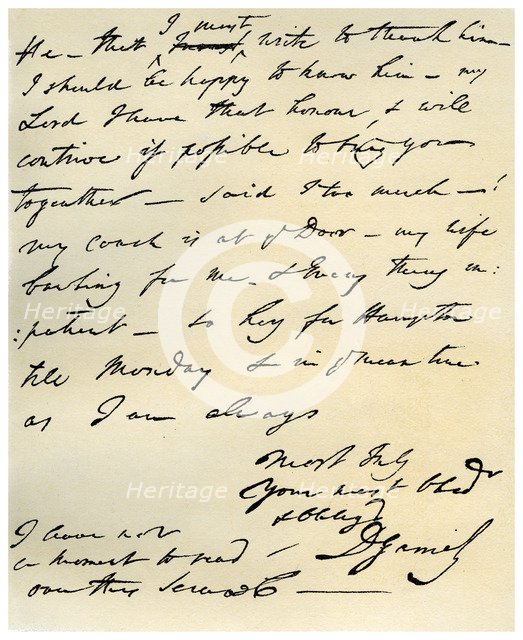 I must
He - that I must write to thank him -
I should be happy to know him - my
Lord I have that honour, & will
contrive if possible to bring you
together - said I too much - !
my coach is at yr Door - my wife
bawling for me - & Every thing im:
:patient - so hey for Hampton
till Monday & in ye mean time
as I am always
Most Truly
Your most Obedt
& Oblig'd
D Garrick
I have not
a moment to read
over this Scrawl
Heritage
Heritage
Heritage
Heritage
Heritage
Heritage
©